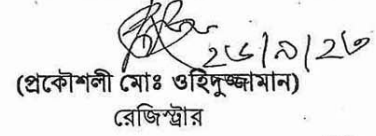 ২৬/৯/২৩
(প্রকৌশলী মোঃ ওহিদুজ্জামান)
রেজিস্ট্রার